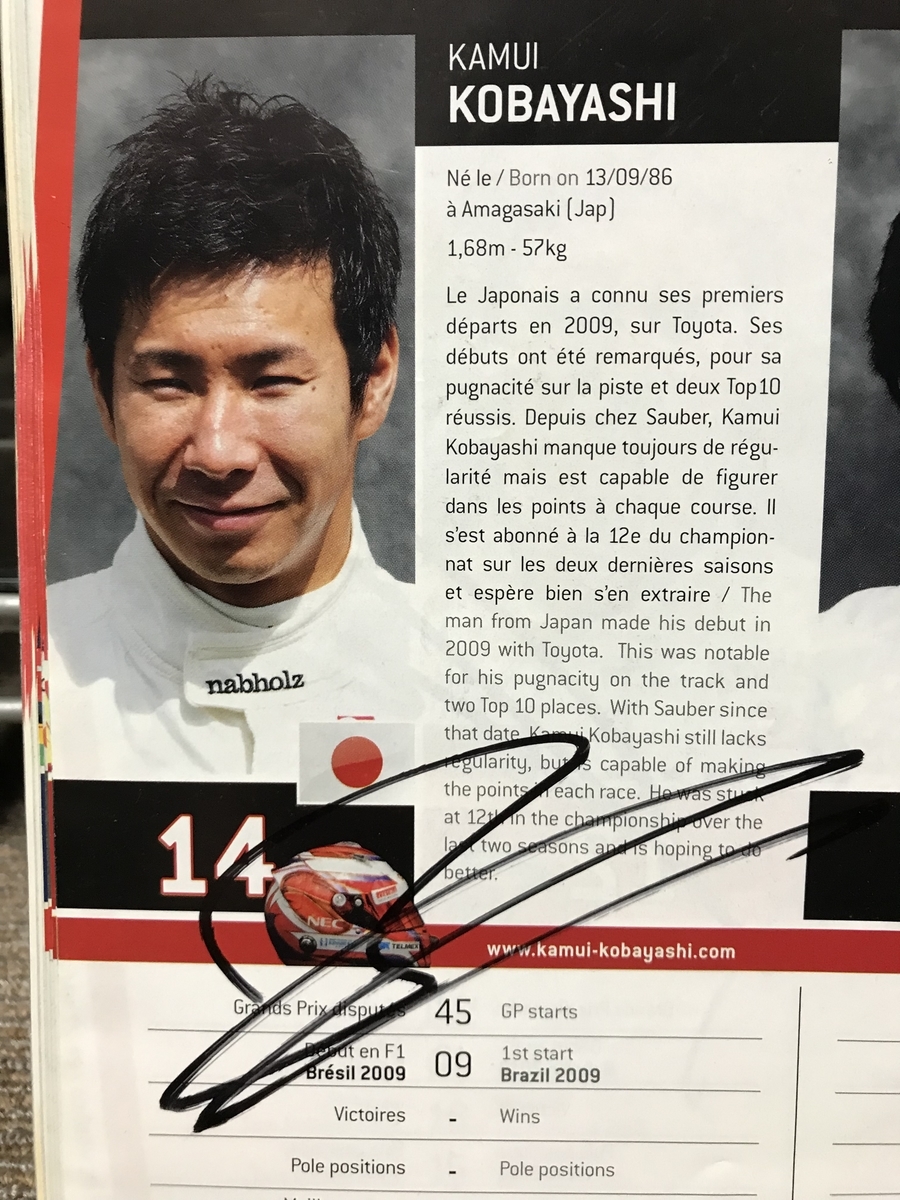 KAMUI
KOBAYASHI
Né le / Born on 13/09/86
à Amagasaki (Jap)
1,68m - 57kg
Le Japonais a connu ses premiers
départs en 2009, sur Toyota. Ses
débuts ont été remarqués, pour sa
pugnacité sur la piste et deux Top10
réussis. Depuis chez Sauber, Kamui
Kobayashi manque toujours de régu-
larité mais est capable de figurer
dans les points à chaque course. Il
s'est abonné à la 12e du champion-
nat sur les deux dernières saisons
et espère bien s'en extraire / The
man from Japan made his debut in
2009 with Toyota. This was notable
for his pugnacity on the track and
two Top 10 places. With Sauber since
that date, Kamui Kobayashi still lacks
regularity, but is capable of making
the points in each race. He was stuck
at 12th in the championship over the
last two seasons and is hoping to do
better.
nabholz
14
NEC
TELMEX
www.kamui-kobayashi.com
Grands Prix disputés 45 GP starts
Début en F1 09 1st start
Brésil 2009 Brazil 2009
Victoires - Wins
Pole positions - Pole positions